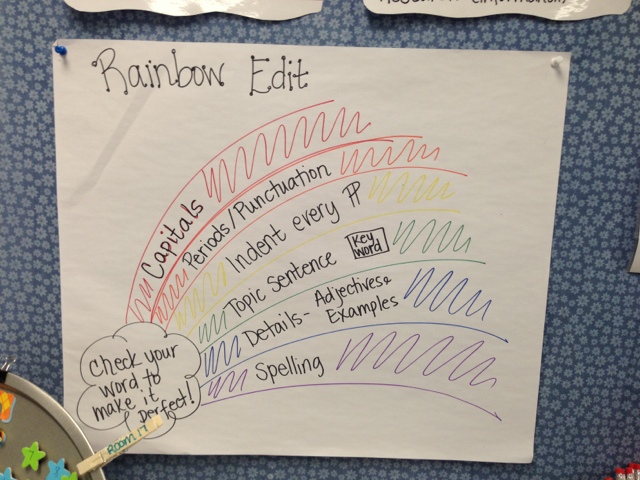 Rainbow Edit
Capitals
Periods/Punctuation
Indent every PP
Topic Sentence
Key
word
Details- Adjectives&
Examples
Spelling
Check your
word to
make it
perfect!
ROOM 17